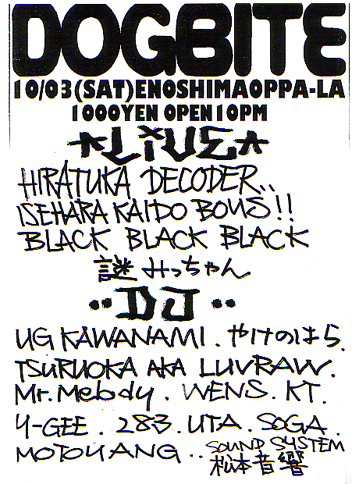 DOGBITE
10/03(SAT)ENOSHIMAOPPA-LA
1000YEN OPEN10PM
LIVE
HIRATUKA DECODER..
ISEHARA KAIDO BOYS!!
BLACK BLACK BLACK
謎みっちゃん
DJ
UG KAWANAMI. やけのはら.
TSURUOKA AKA LUVRAW.
Mr.Melody. WENS. KT.
Y-GEE. 283. UTA. SOGA.
MOTOYANG.. SOUND SYSTEM
松本音響